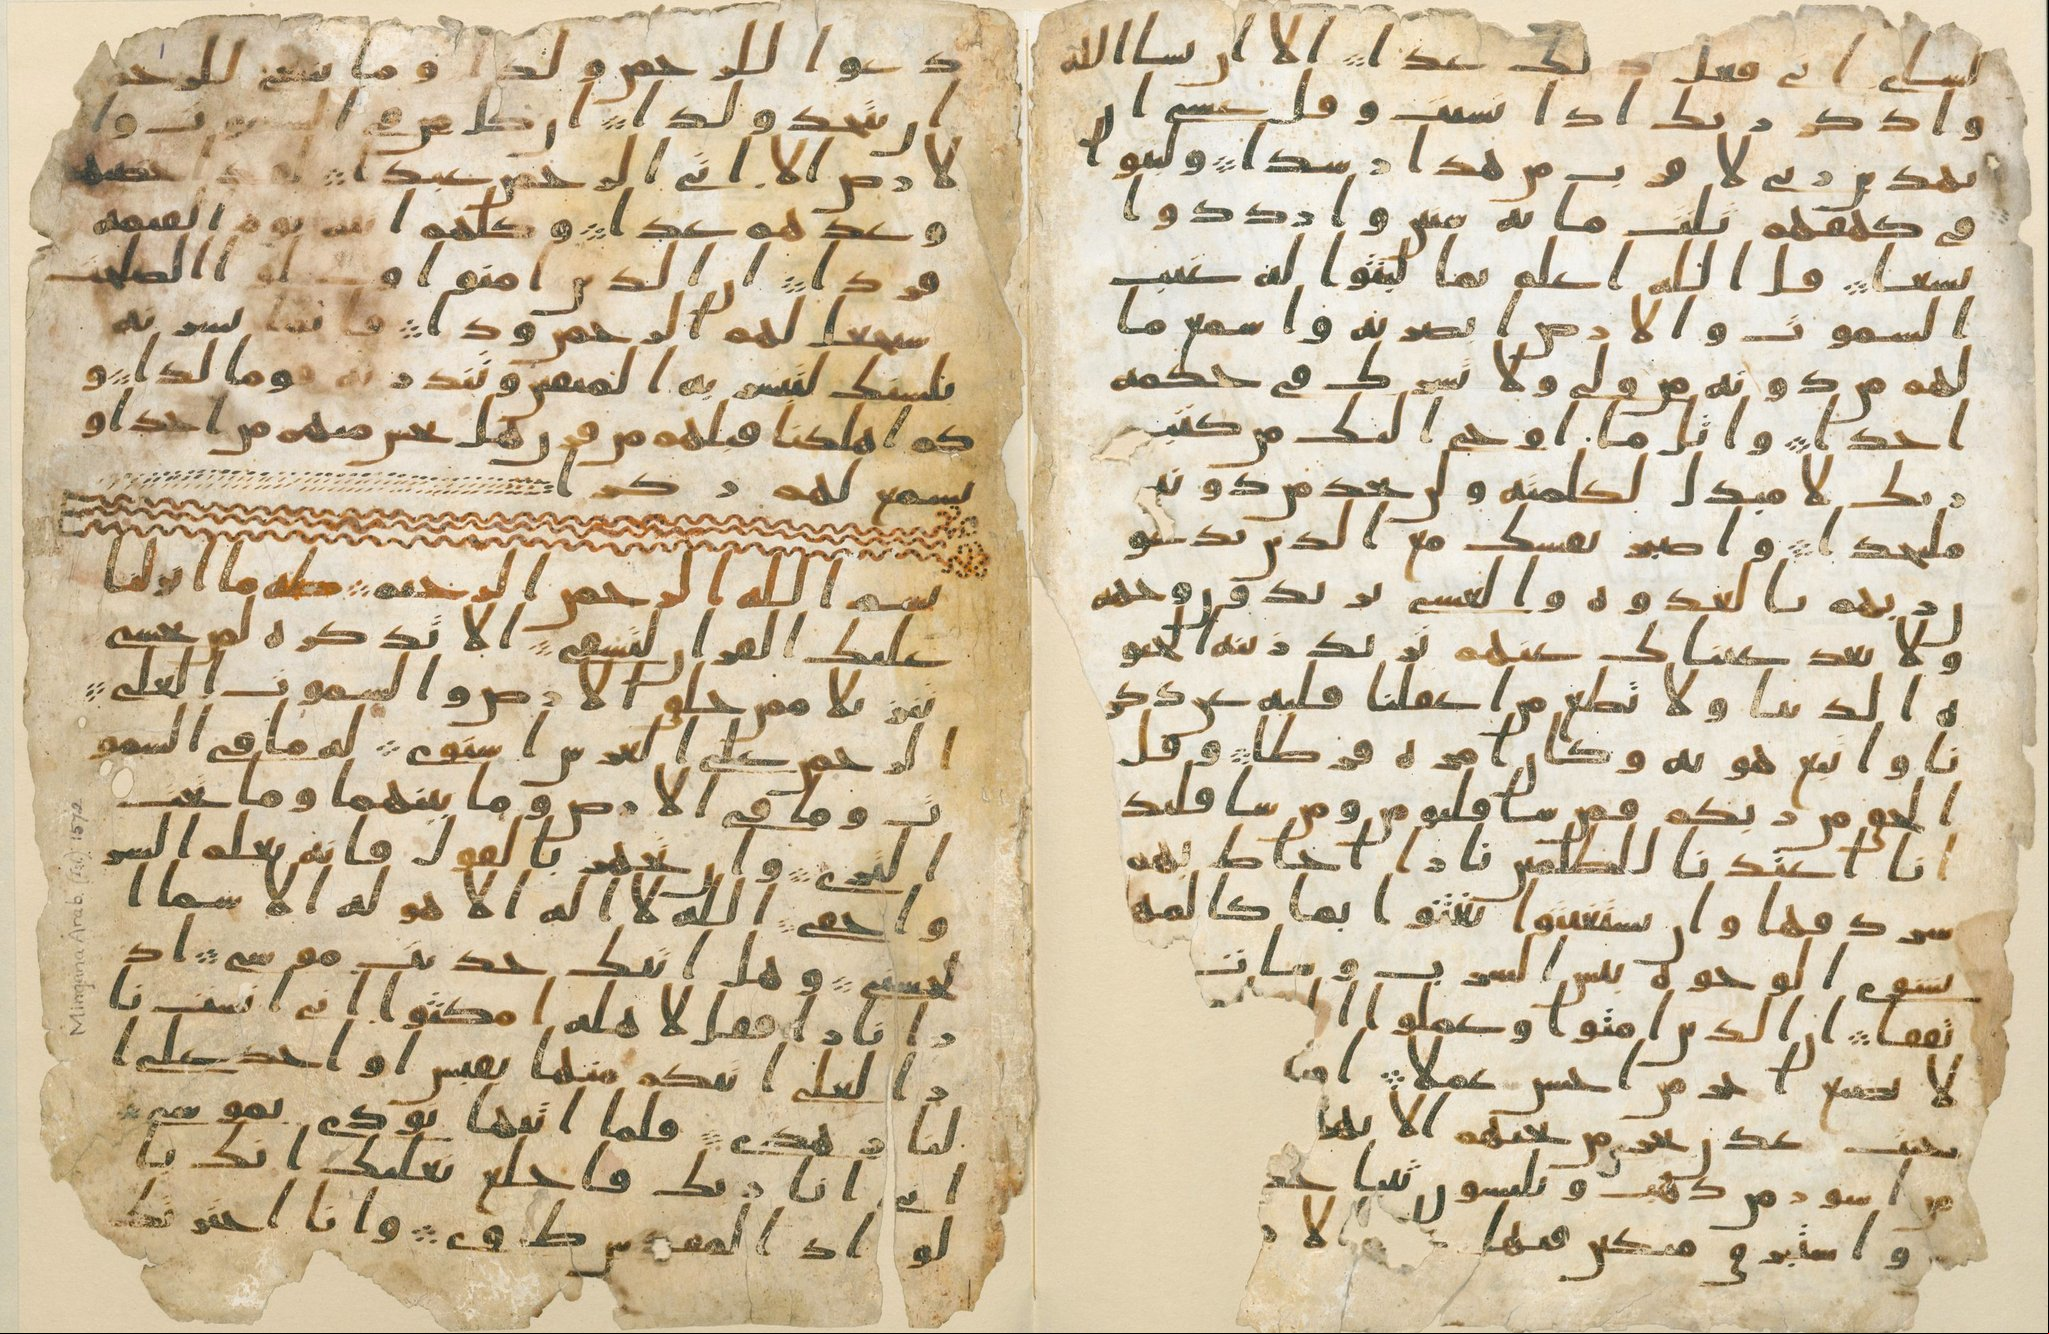 لشاي اني فعل ذلك غدا الا ان يشا الله
واذكر ربك اذا نسيت وقل عسى ان
يهدين ربي لاقرب من هذا رشدا ولبثوا
في كهفهم ثلث مائه سنين وازددوا
تسعا قل الله اعلم بما لبثوا له غيب
السموت والارض ابصر به واسمع ما
لهم من دونه من ولي ولا تشرك في حكمه
احدا واتل ما اوحي اليك من كتب
ربك لا مبدل لكلمته ولن تجد من دونه
ملتحدا واصبر نفسك مع الذين يدعو
ن ربهم بالغدوه والعشي يريدون وجهه
ولا تعد عيناك عنهم تريد زينه الحيو
ه الدنيا ولا تطع من اغفلنا قلبه عن ذكر
نا واتبع هويه وكان امره فرطا وقل
الحق من ربكم فمن شا فليومن ومن شا فليكفر
انا اعتدنا للظلمين نارا احاط بهم
سردقها وان يستغيثوا يغثوا بما كالمه
يشوي الوجوه بئس الشرب وسات
تفقا ان الذين امنوا وعملوا ا
لا نضيع اجر من احسن عملا
جنت عدن تجري من تحتهم الانها
من اسور من ذهب ويلبسون ثيبا خضر
واستبرق متكين فيها الار
دعوا للرحمن ولدا وما ينبغي للرحمن
ان يتخذ ولدا ان كل من في السموت وا
لارض الا اتي الرحمن عبدا لقد احصيهم
وعدهم عدا وكلهم اتيه يوم القيمه
فردا ان الذين امنوا وعملوا الصلحت
سيجعل لهم الرحمن ودا فانما يسرنه
بلسنك لتبشر به المتقين وتنذر به قوما لدا و
كم اهلكنا قبلهم من قرن هل تحس منهم من احد او
تسمع لهم ركزا
بسم الله الرحمن الرحيم طه ما انزلنا
عليك القران لتشقى الا تذكره لمن يخشى
تنزيلا ممن خلق الارض والسموت العلى
الرحمن على العرش استوى له ما في السمو
ت وما في الارض وما بينهما وما تحت
الثرى وان تجهر بالقول فانه يعلم السر
واخفى الله لا اله الا هو له الاسما ا
لحسنى وهل اتيك حديث موسى اذ
را نارا فقل لاهله امكثوا اني انست نا
را لعلي اتيكم منها بقبس او احد على ا
لنار هدى فلما اتيها نودي يموسى
اني انا ربك فاخلع نعليك انك با
لواد المقدس طوى وانا اخترتك
Mingana Arab. (Isl.) 1572